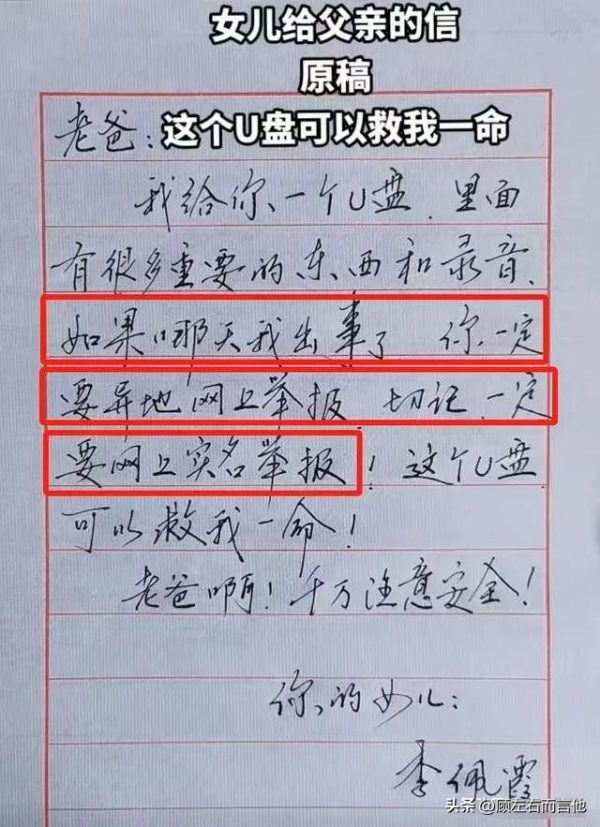 女儿给父亲的信
原稿
这个U盘可以救我一命
老爸:
我给你一个U盘,里面
有很多重要的东西和录音、
如果哪天我出事了 你一定
要异地网上举报 切记、一定
要网上实名举报!这个U盘
可以救我一命!
老爸啊!千万注意安全!
你的女儿:
李佩霞
头条 @顾左右而言他